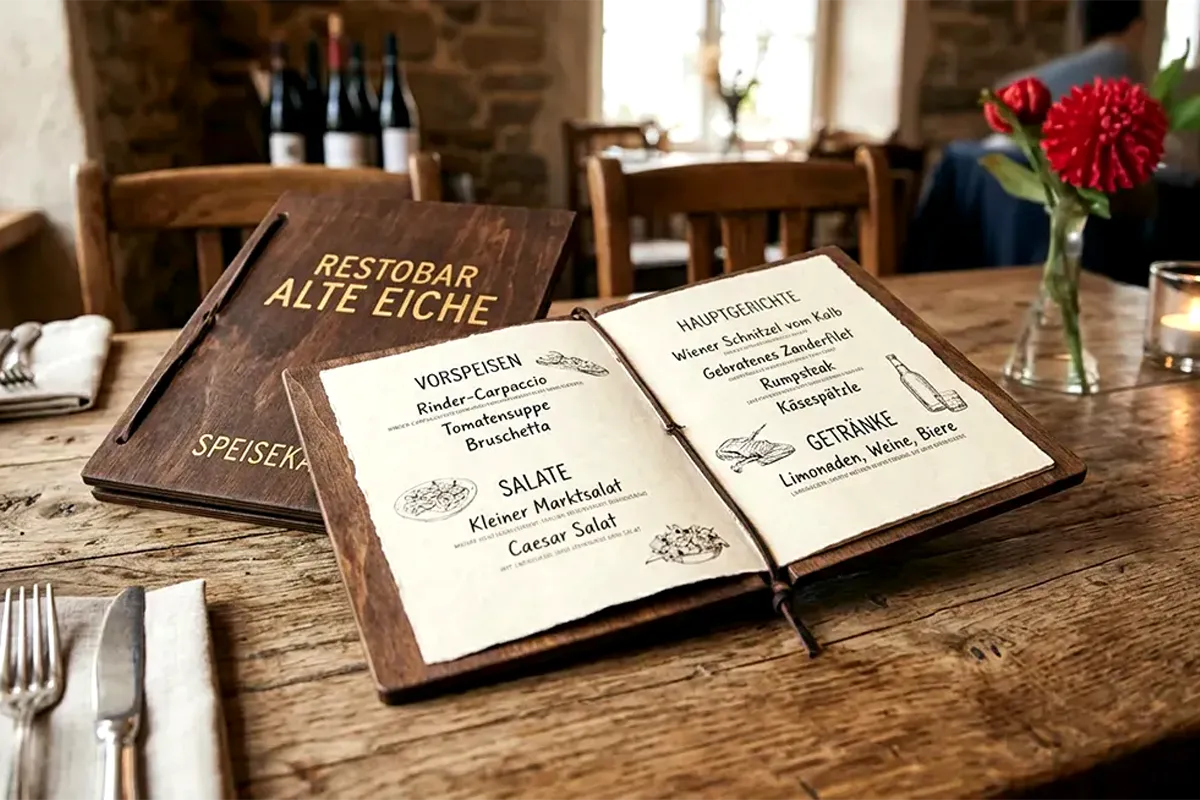 RESTOBAR
ALTE EICHE
SPEISEKA
VORSPEISEN
Rinder-Carpaccio
Tomatensuppe
Bruschetta
SALATE
Kleiner Marktsalat
Caesar Salat
HAUPTGERICHTE
Wiener Schnitzel vom Kalb
Gebratenes Zanderfilet
Rumpsteak
Käsespätzle
GETRÄNKE
Limonaden, Weine, Biere